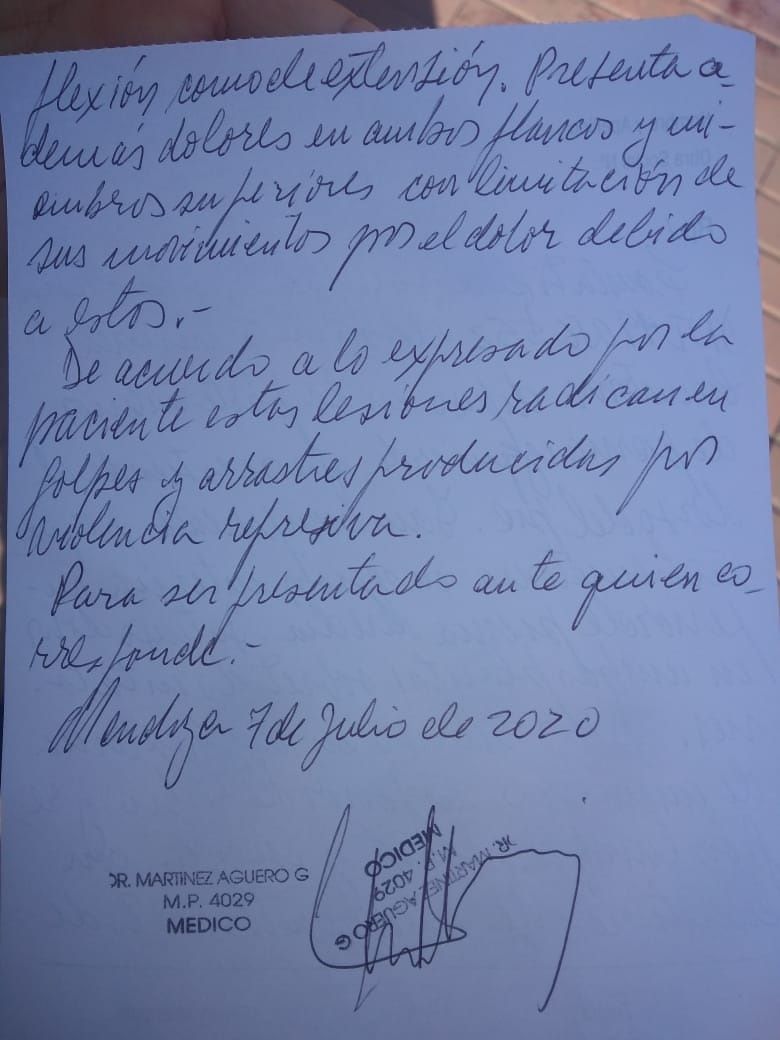 flexión como de extensión. Presenta a-
demás dolores en ambos flancos y mi-
embros superiores con limitación de
sus movimientos por el dolor debido
a estos.-
De acuerdo a lo expresado por la
paciente estas lesiones radican en
golpes y arrastres producidas por
violencia represiva.
Para ser presentado ante quien co-
rresponde.-
Mendoza 7 de Julio de 2020
DR. MARTINEZ AGUERO G
M.P. 4029
MEDICO
DR. MARTINEZ AGUERO G
M.P. 4029
MEDICO